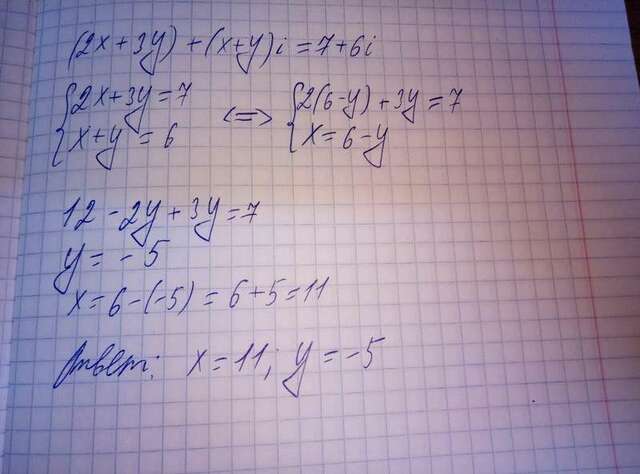 (2x+3y)+(x+y)i=7+6i
{2x+3y=7 <=> {2(6-y)+3y=7
{x+y=6 {x=6-y
12-2y+3y=7
y=-5
x=6-(-5)=6+5=11
Ответ: x=11; y=-5